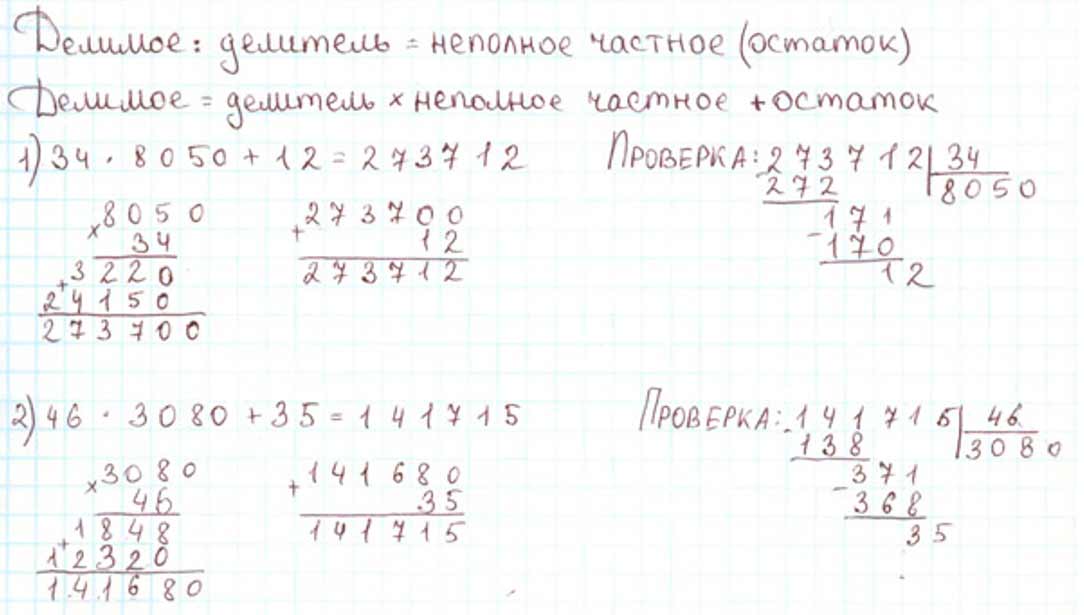 Делимое : делитель = неполное частное (остаток)
Делимое = делитель × неполное частное + остаток
1) 34 · 8050 + 12 = 273712
ПРОВЕРКА: 273712 | 34
- 272 | 8050
171
- 170
12
× 8050
34
+ 3220
24150
273700
+ 273700
12
273712
2) 46 · 3080 + 35 = 141715
ПРОВЕРКА: - 141715 | 46
138 | 3080
- 371
368
35
× 3080
46
+ 1848
12320
141680
+ 141680
35
141715